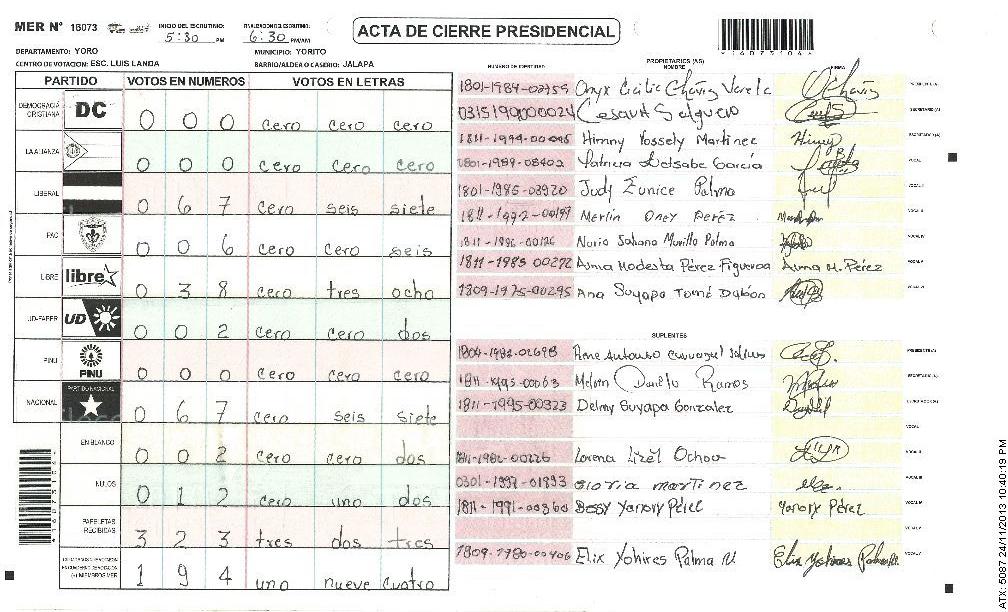 MER N° 16073
INICIO DEL ESCRUTINIO:
5:30 PM
FINALIZACION ESCRUTINIO:
6:30 PM/AM
ACTA DE CIERRE PRESIDENCIAL
*160731064*
DEPARTAMENTO: YORO
MUNICIPIO: YORITO
CENTRO DE VOTACION: ESC. LUIS LANDA
BARRIO/ALDEA O CASERIO: JALAPA
PARTIDO VOTOS EN NUMEROS VOTOS EN LETRAS
DEMOCRACIA CRISTIANA DC 0 0 0 cero cero cero
LA ALIANZA 0 0 0 cero cero cero
LIBERAL 0 6 7 cero seis siete
PAC 0 0 6 cero cero seis
LIBRE libre 0 3 8 cero tres ocho
UD-FAPER UD 0 0 2 cero cero dos
PINU PINU 0 0 0 cero cero cero
NACIONAL PARTIDO NACIONAL 0 6 7 cero seis siete
EN BLANCO 0 0 2 cero cero dos
NULOS 0 1 2 cero uno dos
PAPELETAS RECIBIDAS 3 2 3 tres dos tres
(+) MIEMBROS MER 1 9 4 uno nueve cuatro
NUMERO DE IDENTIDAD PROPIETARIOS (AS) NOMBRE FIRMA
1801-1984-02759 Onyx Cecilia Chávez Varela PRESIDENTE (A)
0315199000024 Cesar Salguero SECRETARIO (A)
1811-1994-00095 Himny Yossely Martinez
0801-1989-08402 Patricia Betsabe García VOCAL
1801-1985-03920 Judy Eunice Palma VOCAL
1811-1992-00199 Merlin Oney Perez VOCAL
1811-1986-00126 Nuria Murillo Palma VOCAL
1811-1985 00272 Alma Modesta Pérez Figueroa Alma M. Pérez VOCAL
1809-1975-00295 Ana Suyapa Tomé VOCAL
SUPLENTES
1804-1982-02698 Rene Antonio PRESIDENTE (A)
1811-1995-00063 Danilo Ramos
1811-1995-00323 Delmy Suyapa Gonzalez
VOCAL
1811-1982-00226 Lorena Lizel Ochoa VOCAL
0301-1997-01893 Gloria martinez VOCAL
1811-1991-00360 Bessy Yanory Pérez Yanory Pérez VOCAL
VOCAL
1809-1980-00406 Elix Yohires Palma Elix Yohires Palma VOCAL
ATX: 5087 24/11/2013 10:40:19 PM